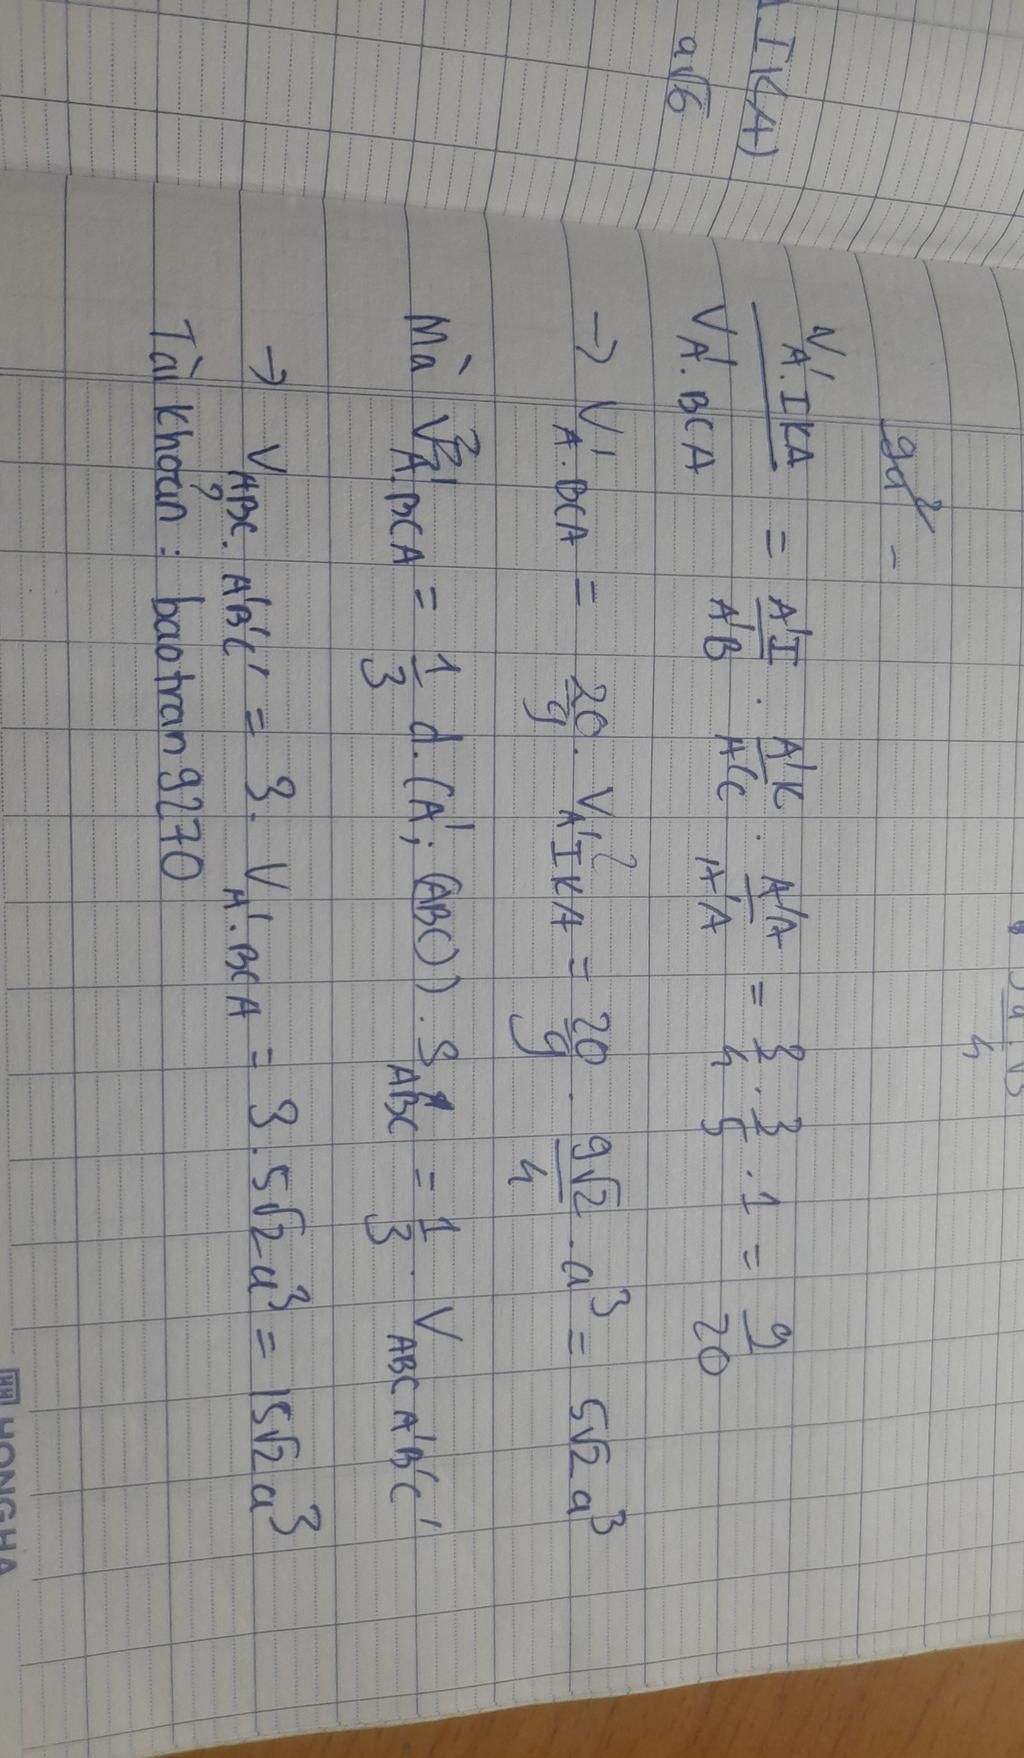 .IKA)
a√6
3a√3/4
9a² -
V A'.IKA / V A'.BCA = A'I/A'B . A'K/A'C . A'A/A'A = 3/4 . 3/5 . 1 = 9/20
→ V A'.BCA = 20/9 . V A'IKA = 20/9 . 9√2/4 . a³ = 5√2 a³
Mà V A'.BCA = 1/3 d.(A'; (ABC)) . S ABC = 1/3 . V ABC A'B'C'
→ V ABC. A'B'C' = 3. V A'.BCA = 3. 5√2 a³ = 15√2 a³
Tài khoản : baotran9270
HONGHA